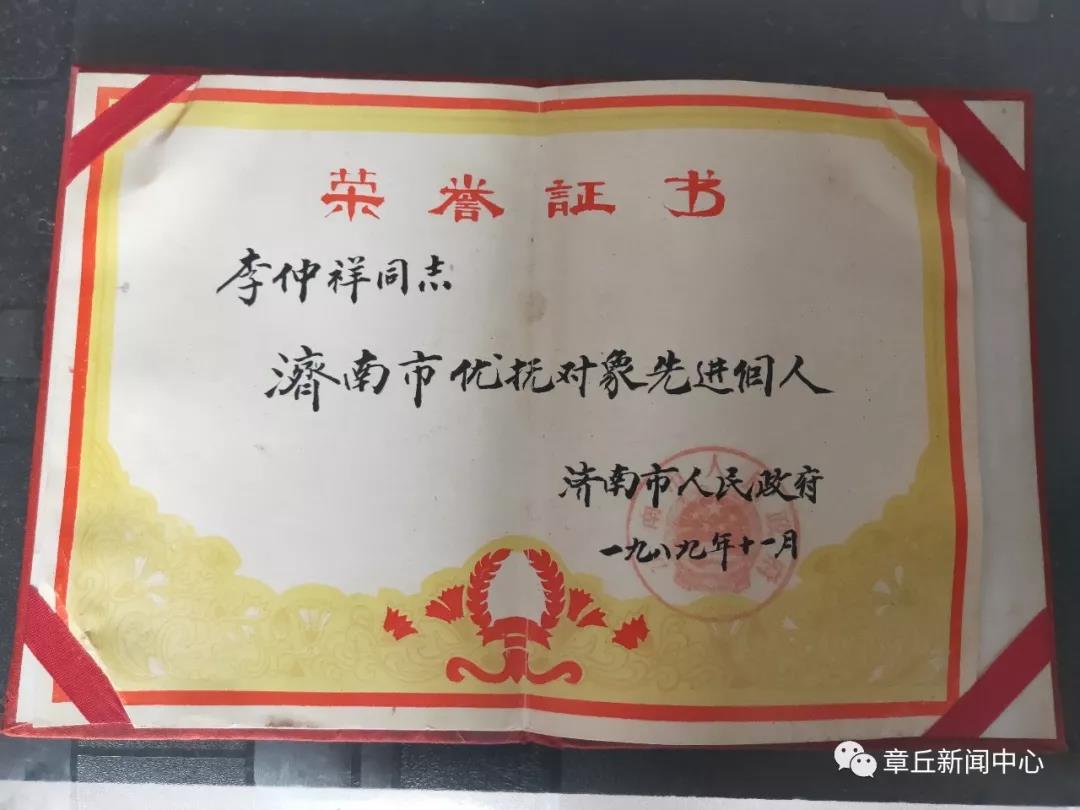 荣誉証书
李仲祥同志
濟南市优抚对象先进個人
济南市人民政府
一九八九年十一月
章丘新闻中心